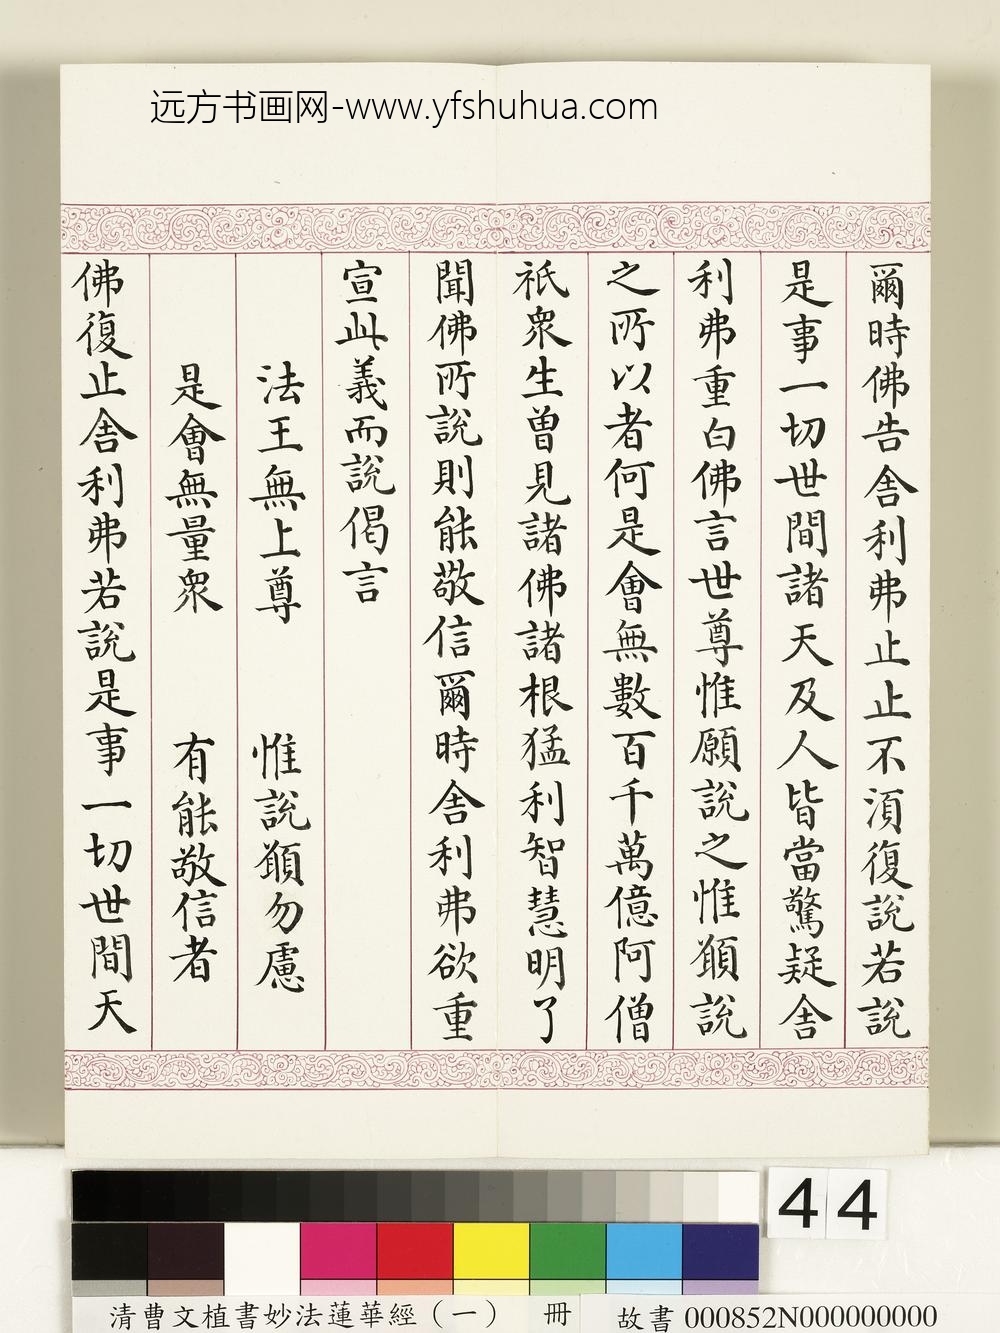 远方书画网-www.yfshuhua.com
爾時佛告舎利弗止止不湏復說若說
是事一切世間諸天及人皆當驚疑舎
利弗重白佛言世尊惟願說之惟頋說
之所以者何是會無數百千萬億阿僧
祇眾生曽見諸佛諸根猛利智慧明了
聞佛所說則能敬信爾時舎利弗欲重
宣此義而說偈言
法王無上尊　惟說頋勿慮
是會無量眾　有能敬信者
佛復止舎利弗若說是事一切世間天
44
清曹文植書妙法蓮華經（一）　冊　故書000852N000000000